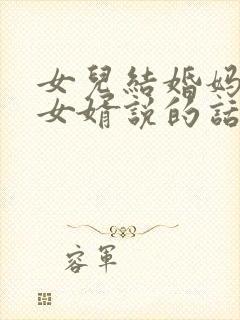 女兒結婚媽
女婿說的話
容軍